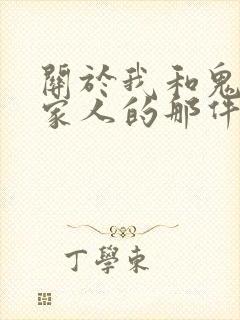 關於我和鬼
家人的那件
丁學東